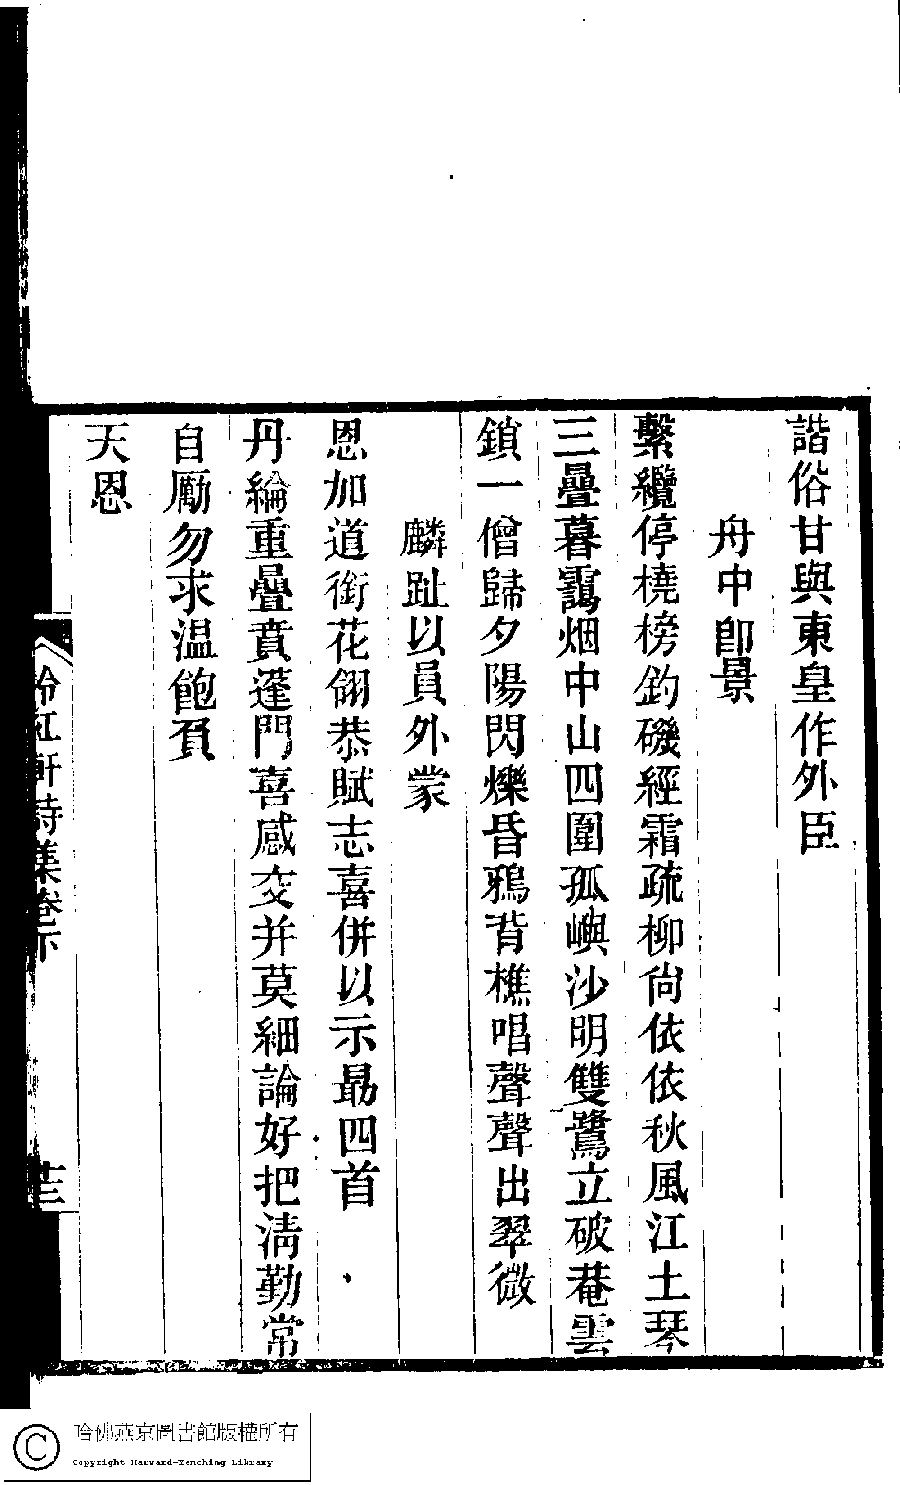 諧俗甘與東皇作外臣
舟中卽景
繫纜停橈榜釣磯經霜疏柳尙依依秋風江土琴
三疊暮靄烟中山四圍孤嶼沙明雙鷺立破菴雲
鎖一僧歸夕陽閃爍昏鴉背樵唱聲聲出翠微
麟趾以員外蒙
恩加道銜花翎恭賦志喜併以示勗四首
丹綸重疊賁蓬門喜感交并莫細論好把淸勤常
自勵勿求溫飽負
天恩
冷紅軒詩集卷下
哈佛燕京圖書館版權所有
Copyright Harvard-Yenching Library